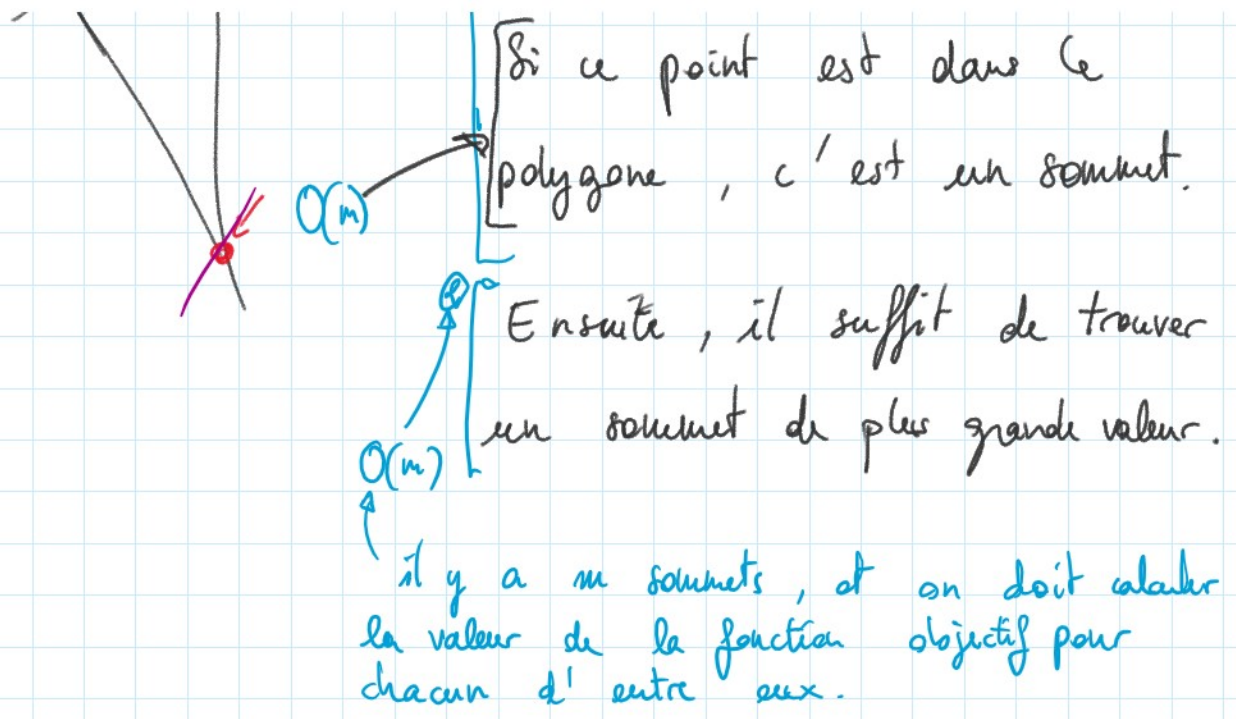 Si ce point est dans le
polygone, c'est un sommet.
O(m)
Ensuite, il suffit de trouver
un sommet de plus grande valeur.
O(m)
il y a m sommets, et on doit calculer
la valeur de la fonction objectif pour
chacun d'entre eux.